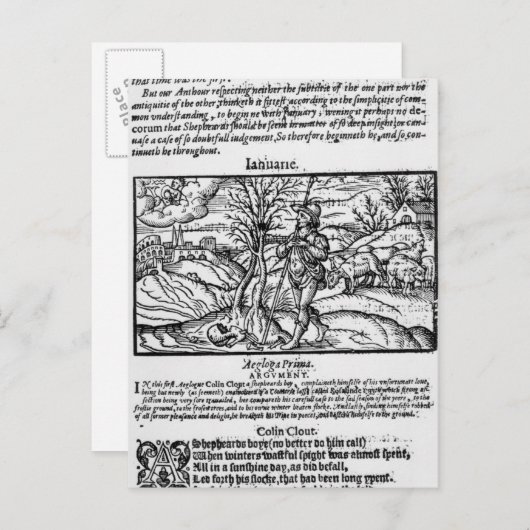 that time was the first.
But our Anthour respecting neither the subtiltie of the one part nor the
antiquitie of the other, thinketh it fittest according to the simplicitie of com-
mon vnderstanding, to begin ne with Ianuary; wening it perhaps no de
corum that Shepheards should be seene in matter of so deep insight, or can-
uase a case of so doubtfull iudgement, So therefore beginneth he, and so con-
tinueth he throughout.
Ianuarie.
Aegloga Prima.
ARGVMENT.
IN this first Aeglogue Colin Clout a shepheards boy, complaineth himselfe of his vnfortunat loue,
being but newly (as seemeth) enamoured of a Countrie lasse called Rosalinde: with which strong affe-
ction being very sore trauailed, he compareth his carefull case to the sad season of the yeere, to the
frostie ground, to the frosen trees, and to his owne winter beaten flocke. And lastly, finding himselfe robbed
of all former pleasance and delight, he breaketh his Pipe in peeces, and casteth himselfe to the ground.
Colin Clout.
A Shepheards boye (no better do him call)
When winters wastful spight was almost spent,
All in a sunshine day, as did befall,
Led forth his flocke, that had been long ypent.